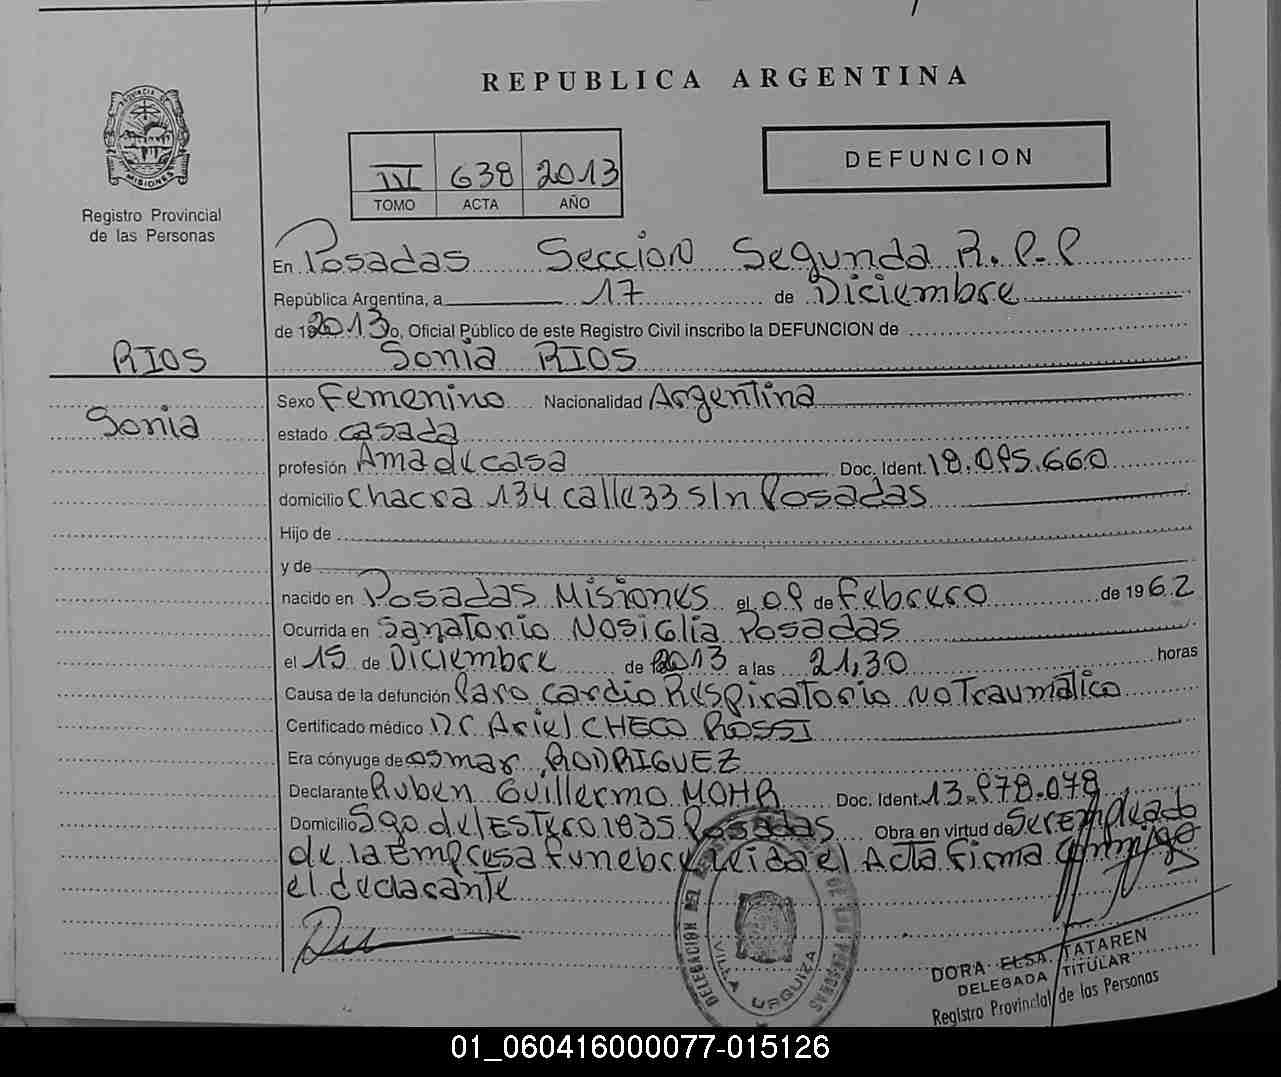 REPUBLICA ARGENTINA
PROVINCIA DE
MISIONES
Registro Provincial
de las Personas
III 638 2013
TOMO ACTA AÑO
DEFUNCION
En Posadas Seccion Segunda R.P.P
República Argentina, a 17 de Diciembre
de 2013 o, Oficial Público de este Registro Civil inscribo la DEFUNCION de
RIOS Sonia RIOS
Sonia
Sexo Femenino Nacionalidad Argentina
estado casada
profesión Ama de casa Doc. Ident. 18.095.660
domicilio chacra 134 calle 33 s/n Posadas
Hijo de
y de
nacido en Posadas Misiones el 09 de Febrero de 1962
Ocurrida en Sanatorio Nosiglia Posadas
el 15 de Diciembre de 2013 a las 21,30 horas
Causa de la defunción Paro cardio Respiratorio no Traumático
Certificado médico Dr Ariel CHECO ROSSI
Era cónyuge de osmar RODRIGUEZ
Declarante Ruben Guillermo MOHR Doc. Ident. 13.978.078
Domicilio Sgo del Estero 1835 Posadas Obra en virtud de Ser Empleado
de la Empresa Funebre Leida el Acta Firma conmigo
el declarante
DELEGACION DEL DE LAS PERSONAS
VILLA URQUIZA
DORA ELSA TATAREN
DELEGADA TITULAR
Registro Provincial de las Personas
01_060416000077-015126